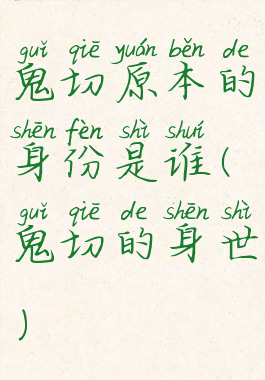 guǐ qiē yuán běn de
鬼切原本的
shēn fèn shì shuí
身份是谁(
guǐ qiē de shēn shì
鬼切的身世
)